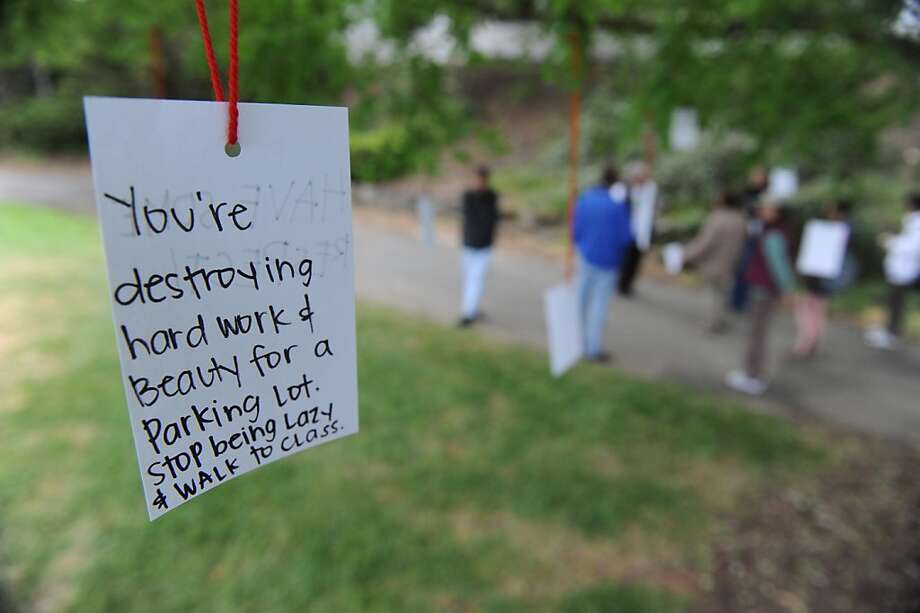 You're
destroying
hard work &
Beauty for a
Parking Lot.
Stop being Lazy
& WALK to CLASS.